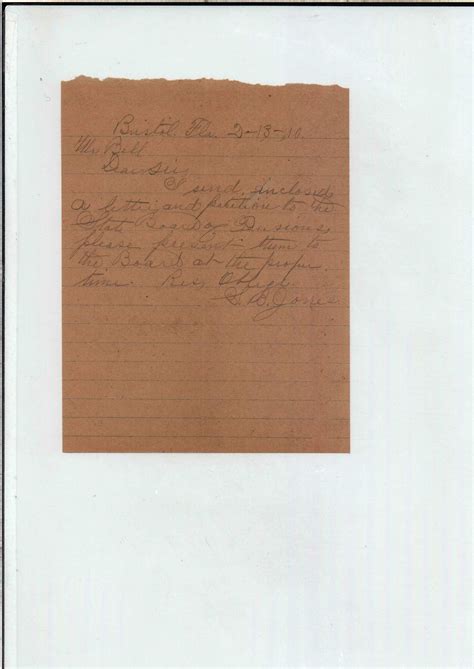 Bristol Fla 2-13-10.
Mr Bell
Dear Sir
I send inclosed
a letter and petition to the
State Board of Pensions
please present them to
the Board at the proper
time. Res
S. B. Jones